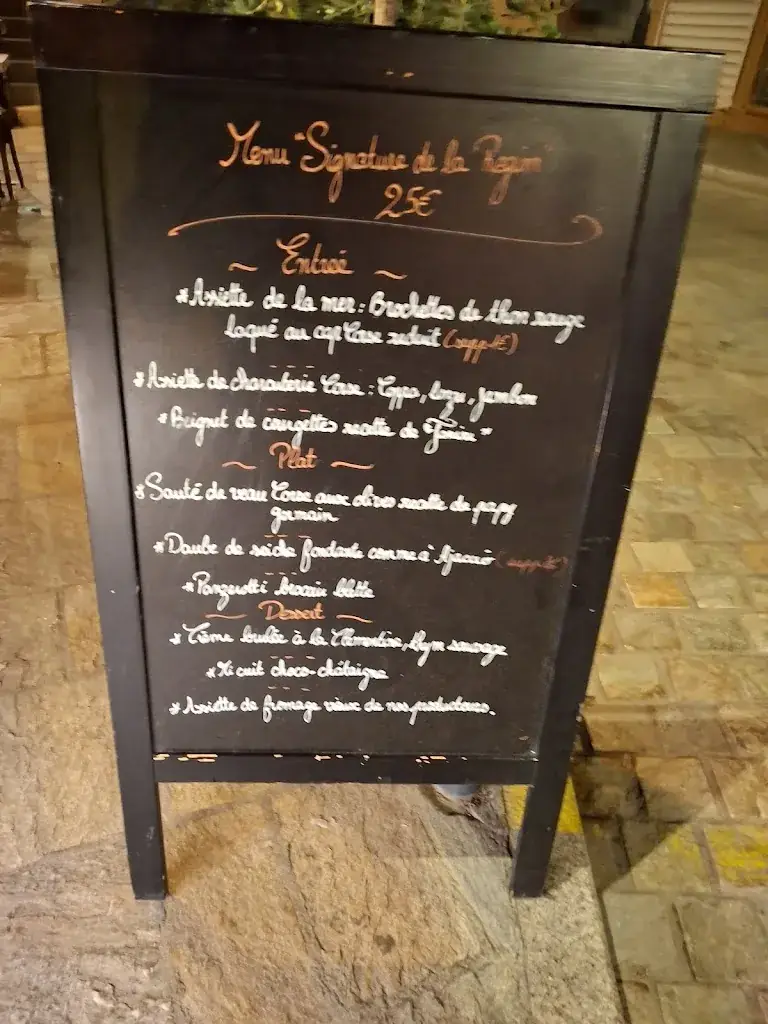 Menu "Signature de la Région"
25€
~ Entreé ~
*Assiette de la mer: Brochettes de thon rouge
laqué au cap Corse reduit (supp
*Assiette de charcuterie Corse: Coppa, lonzu, jambon
*Beignet de courgettes recette de
~ Plat ~
*Sauté de veau Corse aux olives recette de papy
germain
*Daube de seiche fondante comme à Ajaccio
*Panzerotti brocciu blette
~ Dessert ~
*Crème brulée à la Clémentine, thym sauvage
*Mi cuit choco-châtaigne
*Assiette de fromage vieux de nos producteurs.